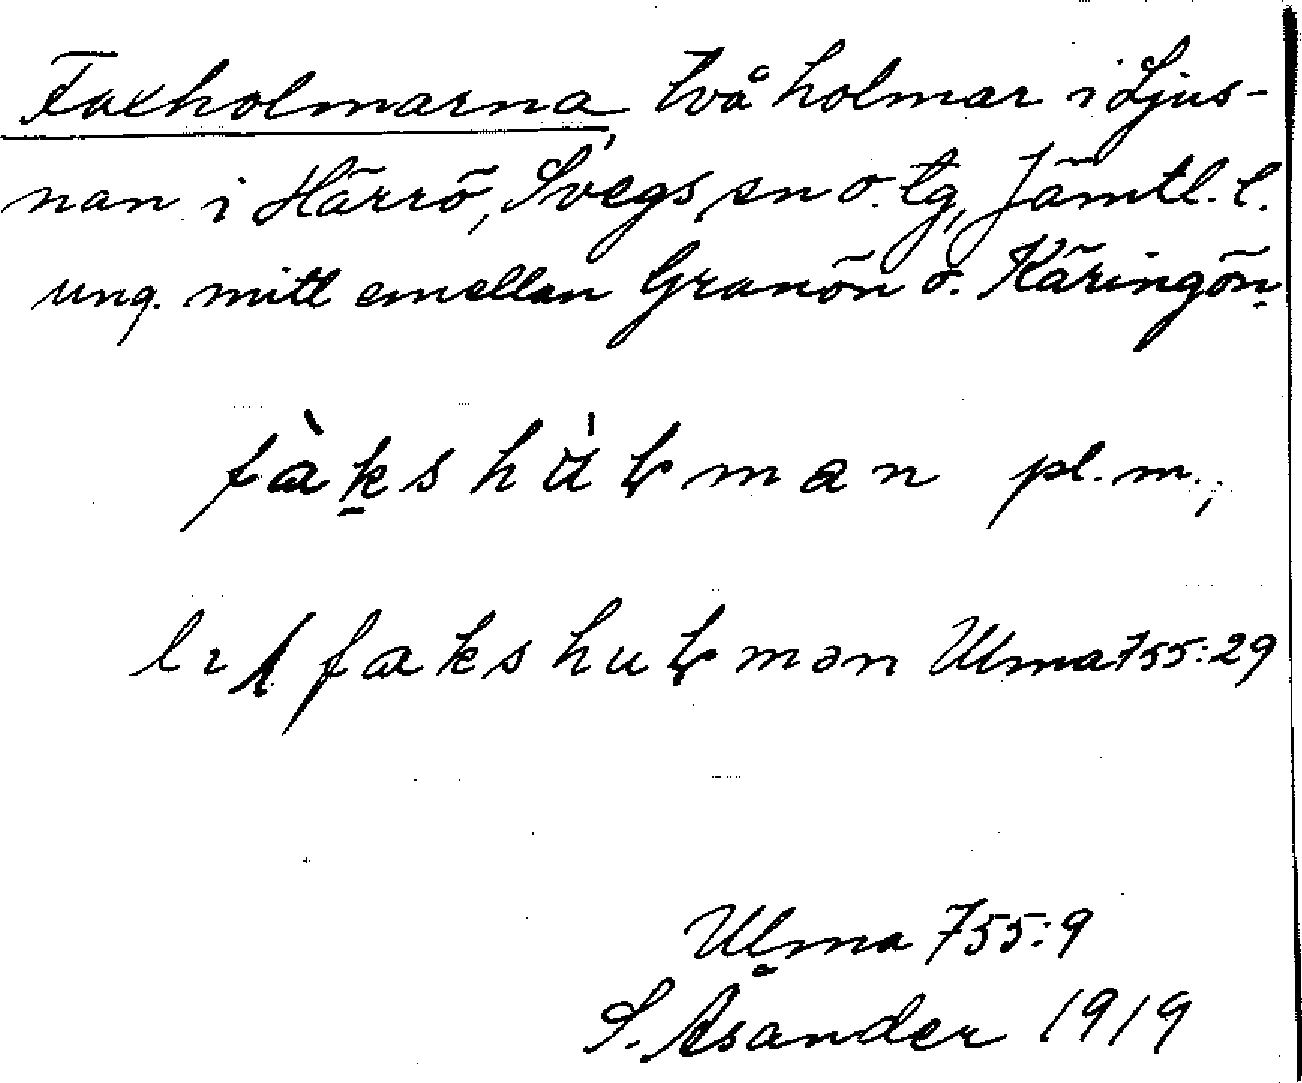 Faxholmarna, två holmar i Ljus-
nan i Härrö, Svegs sn o. tg, Jämtl. l.
ung. mitt emellan Granön o. Käringön.
fàkshu̇ɫman pl. m.,
fakshuɫmən Ulma 755:29
Ulma 755:9
S. Asander 1919